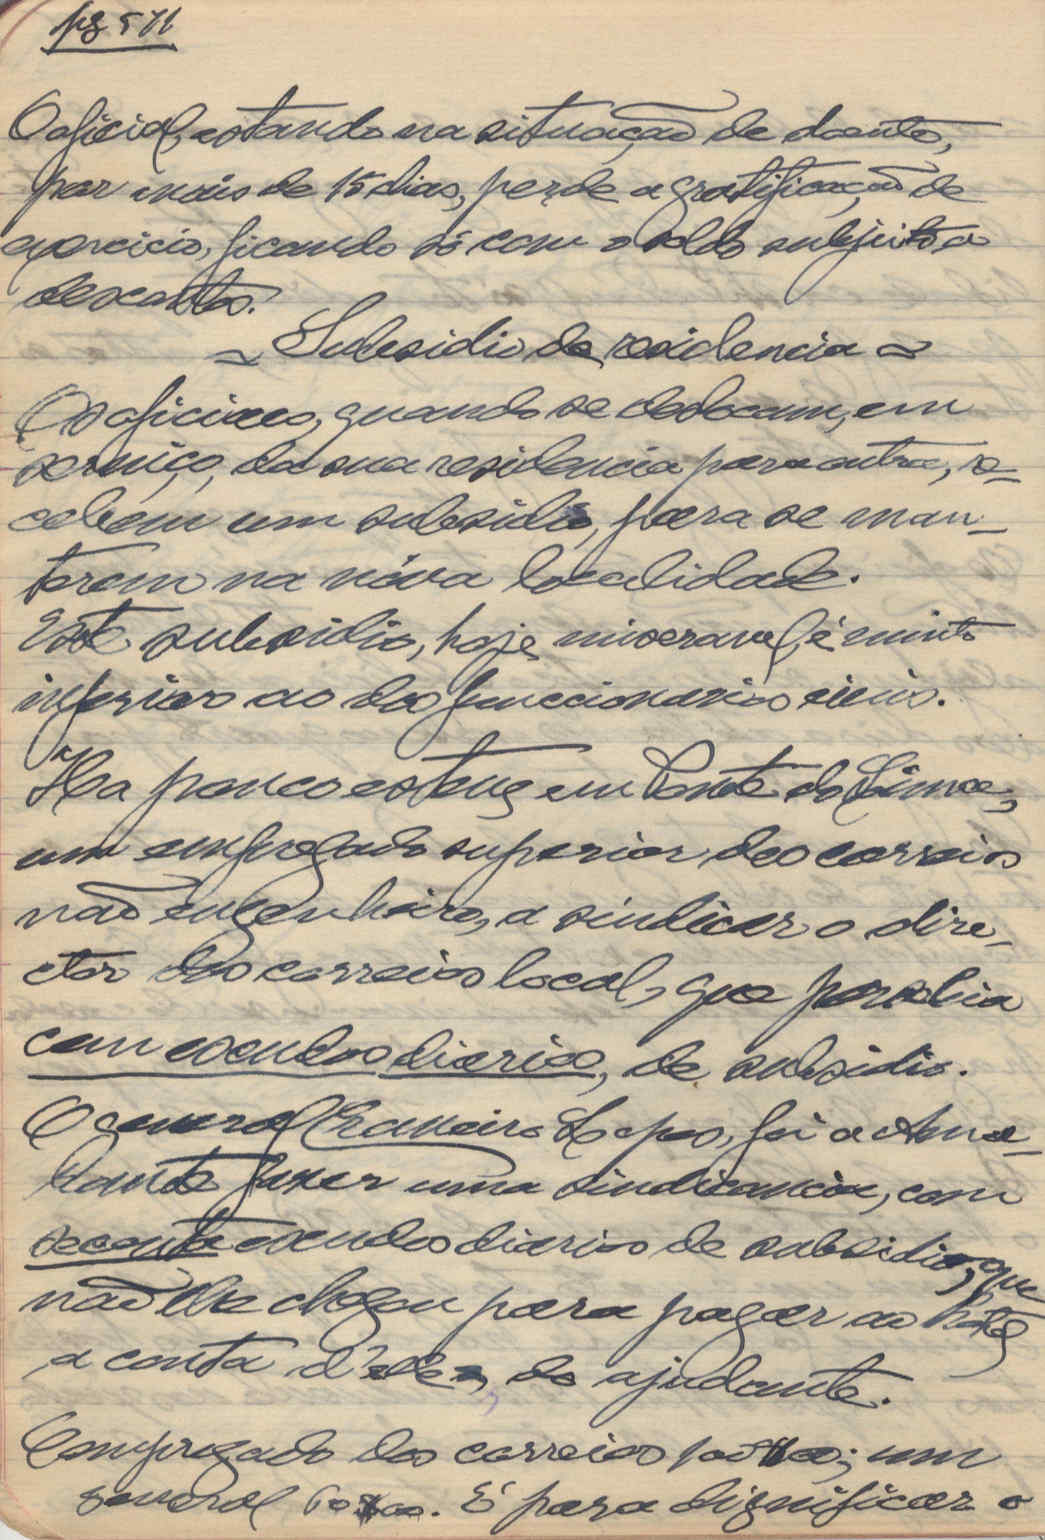 pg 571
O oficial, estando na situação de doente,
por mais de 15 dias, perde a gratificação de
exercicio, ficando só com o soldo subjeito a
descontos.
= Subsidio de residencia =
Os oficiaes, quando se deslocam, em
serviço, da sua residencia para outra, re-
cebem um subsidio, para se man-
terem na nóva localidade.
Este subsidio, hoje miseravel, é muito
inferior ao dos funccionarios civis.
Ha pouco esteve em Ponte do Lima,
um empregado superior dos correios
não engenheiro, a sindicar o dire-
ctor dos correios local, que percebia
cem escudos diarios, de subsidio.
O general Craveiro Lopes, foi a Ama-
rante fazer uma sindicancia, com
secenta escudos diarios de subsidio, que
não lhe chegou para pagar ao hotel
a conta d'elle e do ajudante.
O empregado dos correios 100$00; um
general 60$00. É para dignificar o